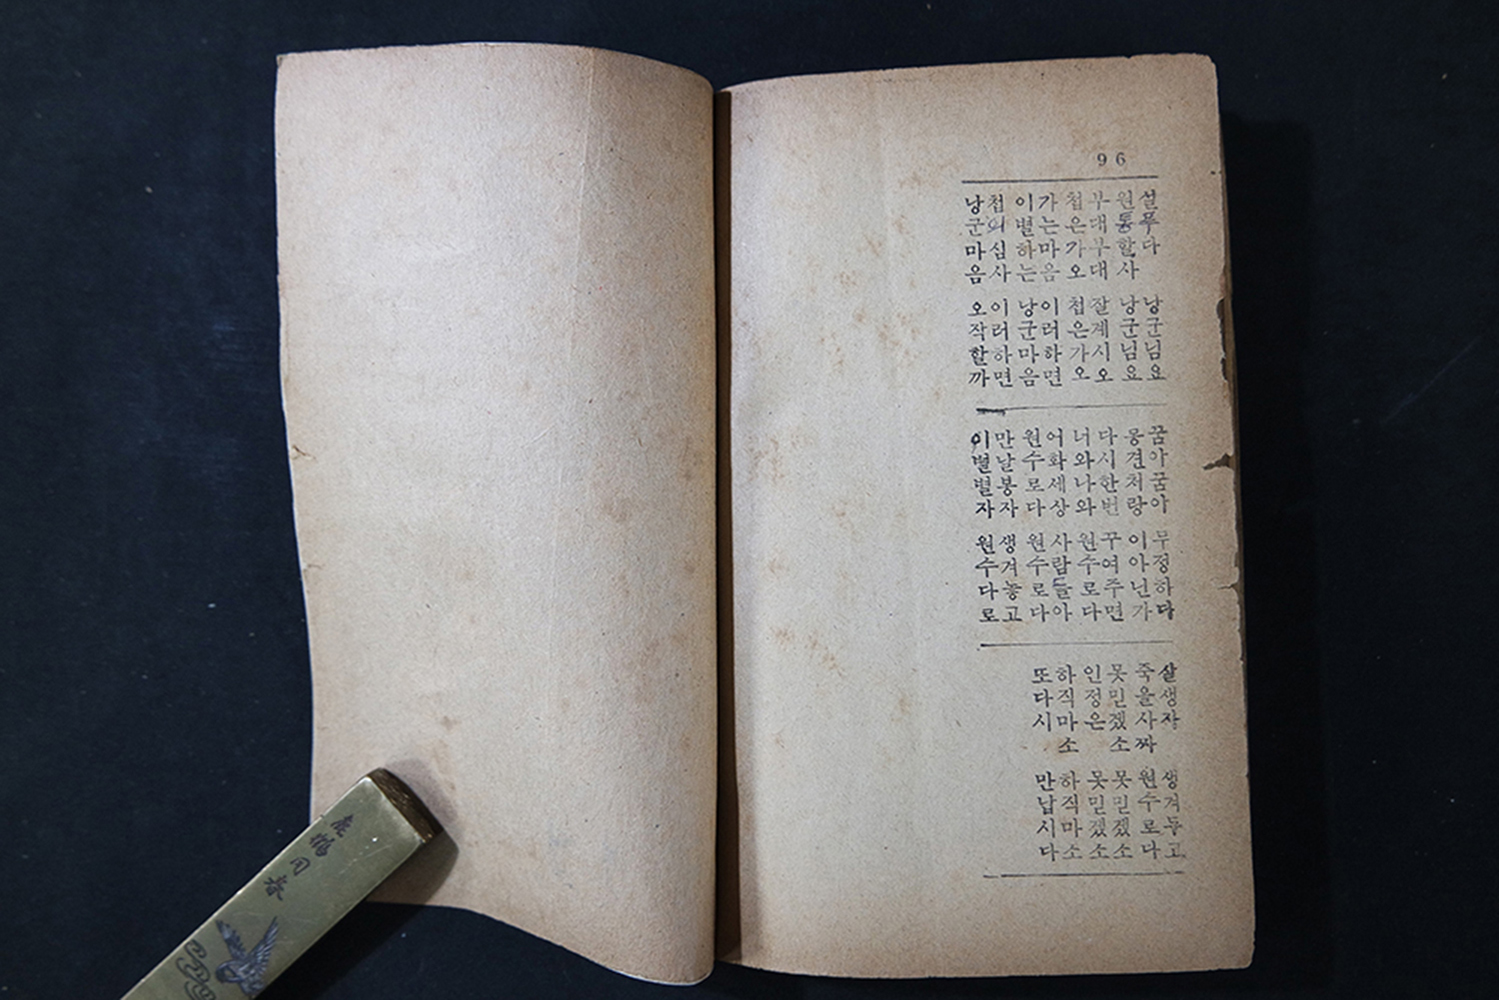 96
설푸다 낭군님요
원통할사 낭군님요
부대부대 잘계시오
첩은가오 첩은가오
가는마음 이러하면
이별하는 낭군마음
첩의심사 이러하면
낭군마음 오작할까
꿈아꿈아 무정하다
몽견처랑 이아닌가
다시한번 꾸여주면
너와나와 원수로다
어화세상 사람들아
원수로다 원수로다
만날봉자 생겨놓고
이별별자 원수다로
살생자 생겨두고
죽을사짜 원수로다
못믿겠소 못믿겠소
인정은 못믿겠소
하직마소 하직마소
또다시 만납시다
鶴同春